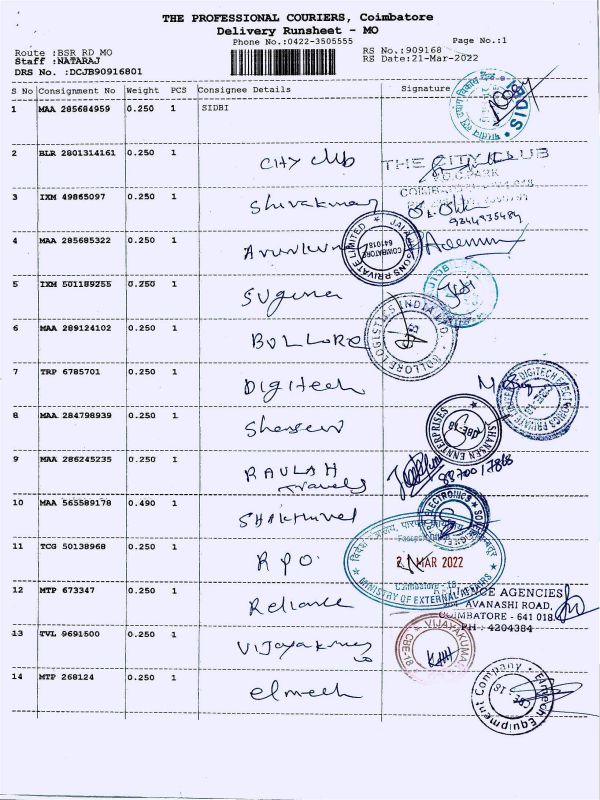 THE PROFESSIONAL COURIERS, Coimbatore
Delivery Runsheet - MO
Phone No.:0422-3505555 Page No.:1
Route :BSR RD MO RS No.:909168
Staff :NATARAJ RE Date:21-Mar-2022
DRS No. :DCJB90916801
S No Consignment No Weight PCS Consignee Details Signature
1 MAA 285684959 0.250 1 SIDBI
2 BLR 2801314161 0.250 1 City club THE CITY CLUB
3 IXM 49865097 0.250 1 Shivakumar
9344935484
4 MAA 285685322 0.250 1 PRIVATE LIMITED COIMBATORE 641018
5 IXM 501189255 0.250 1 Suguna
6 MAA 289124102 0.250 1 BOLLORE BOLLORE LOGISTICS INDIA LTD.
7 TRP 6785701 0.250 1 Digitech DIGITECH
8 MAA 284798939 0.250 1 Shansen SHANSEN ENNTERPRISES CBE-18
9 MAA 286245235 0.250 1 RAULAH
Travels
8870017868
10 MAA 565589178 0.490 1 Shakthivel ELECTRONICS
11 TCG 50138968 0.250 1 RPO 21 MAR 2022
Coimbatore - 18
MINISTRY OF EXTERNAL AFFAIRS
12 MTP 673347 0.250 1 Reliance AGENCIES
AVANASHI ROAD,
COIMBATORE - 641 018.
PH : 4204384
13 TVL 9691500 0.250 1 Vijayakumar VIJAYAKUMAR CBE-18
14 MTP 268124 0.250 1 elmech Elmech Equipment Company CBE - 18